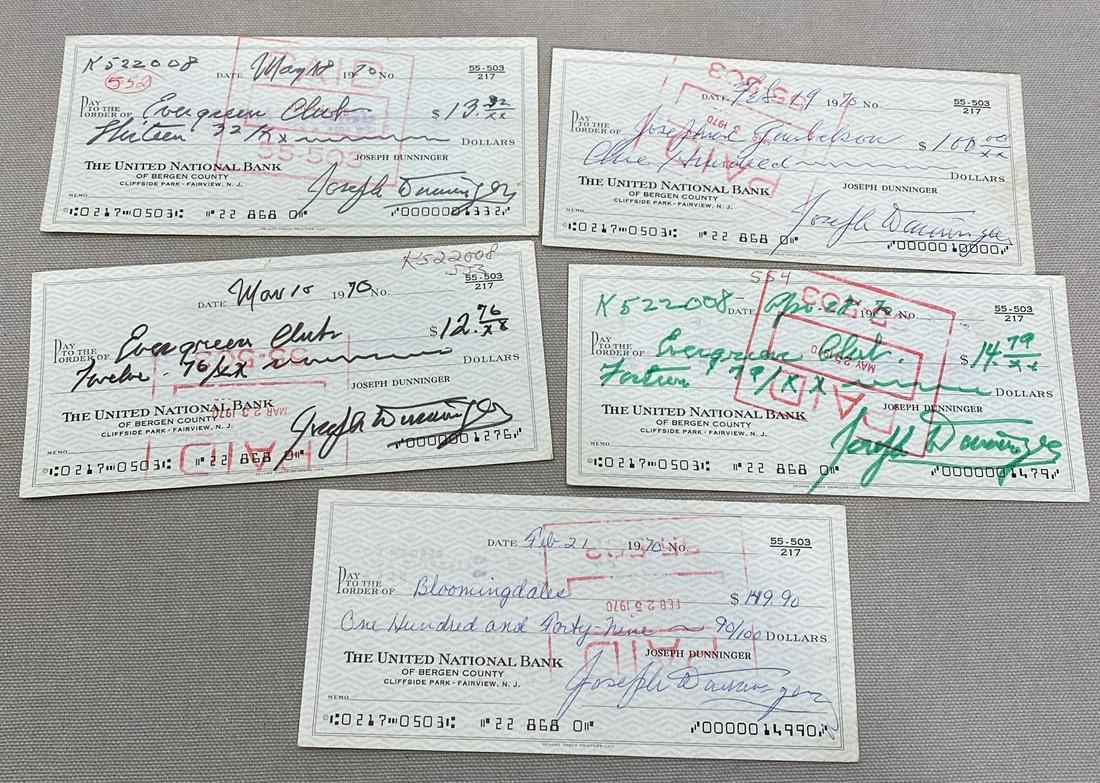 K522008
552
DATE May 18 1970 No. 55-503
217
PAY TO THE ORDER OF Evergreen Club $13.32/xx
Thirteen 32/xx DOLLARS
JOSEPH DUNNINGER
THE UNITED NATIONAL BANK
OF BERGEN COUNTY
CLIFFSIDE PARK - FAIRVIEW, N. J.
Joseph Dunninger
MEMO
0217 0503 22 868 0 0000001332
PAID
55-503
DATE Feb 19 1970 No. 55-503
217
PAY TO THE ORDER OF Josephine $100 00/xx
One Hundred DOLLARS
JOSEPH DUNNINGER
THE UNITED NATIONAL BANK
OF BERGEN COUNTY
CLIFFSIDE PARK - FAIRVIEW, N. J.
Joseph Dunninger
MEMO
0217 0503 22 868 0 0000010000
55-503
1970
PAID
K522008
553
DATE Mar 10 1970 No. 55-503
217
PAY TO THE ORDER OF Evergreen Club $12.76/xx
Twelve 76/xx DOLLARS
JOSEPH DUNNINGER
THE UNITED NATIONAL BANK
OF BERGEN COUNTY
CLIFFSIDE PARK - FAIRVIEW, N. J.
Joseph Dunninger
MEMO
0217 0503 22 868 0 0000001276
55-503
MAR 23 1970
PAID
554
K522008
DATE Apr. 1970 No. 55-503
217
PAY TO THE ORDER OF Evergreen Club. $14.79/xx
Forteen 79/xx DOLLARS
JOSEPH DUNNINGER
THE UNITED NATIONAL BANK
OF BERGEN COUNTY
CLIFFSIDE PARK - FAIRVIEW, N. J.
Joseph Dunninger
MEMO
0217 0503 22 868 0 0000001479
55-503
MAY 25 1970
PAID
DATE Feb 21 1970 No. 55-503
217
PAY TO THE ORDER OF Bloomingdales $149.90
One Hundred and Forty-Nine 90/100 DOLLARS
JOSEPH DUNNINGER
THE UNITED NATIONAL BANK
OF BERGEN COUNTY
CLIFFSIDE PARK - FAIRVIEW, N. J.
Joseph Dunninger
MEMO
0217 0503 22 868 0 0000014990
55-503
FEB 25 1970
PAID